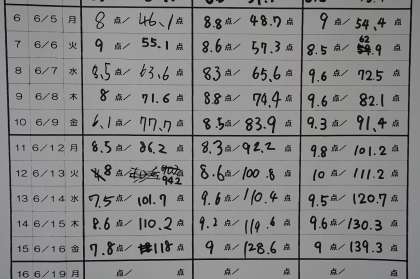 6 6/5 月 8 点/ 46.1点 8.8点/ 48.7点 9 点/ 54.4点
7 6/6 火 9 点/ 55.1点 8.6点/ 57.3点 8.5点/ 62.9点
8 6/7 水 8.5点/ 63.6点 8.3点/ 65.6点 9.6点/ 72.5点
9 6/8 木 8 点/ 71.6点 8.8点/ 74.4点 9.6点/ 82.1点
10 6/9 金 6.1点/ 77.7点 8.5点/ 83.9点 9.3点/ 91.4点
11 6/12 月 8.5点/ 86.2点 8.3点/ 92.2点 9.8点/ 101.2点
12 6/13 火 8点/ 94.2点 8.6点/ 100.8点 10 点/ 111.2点
13 6/14 水 7.5点/ 101.7点 9.6点/ 110.4点 9.5点/ 120.7点
14 6/15 木 8.6点/ 110.2点 9.2点/ 119.6点 9.6点/ 130.3点
15 6/16 金 7.8点/ 118点 9 点/ 128.6点 9 点/ 139.3点
16 6/19 月 点/ 点 点/ 点 点/ 点